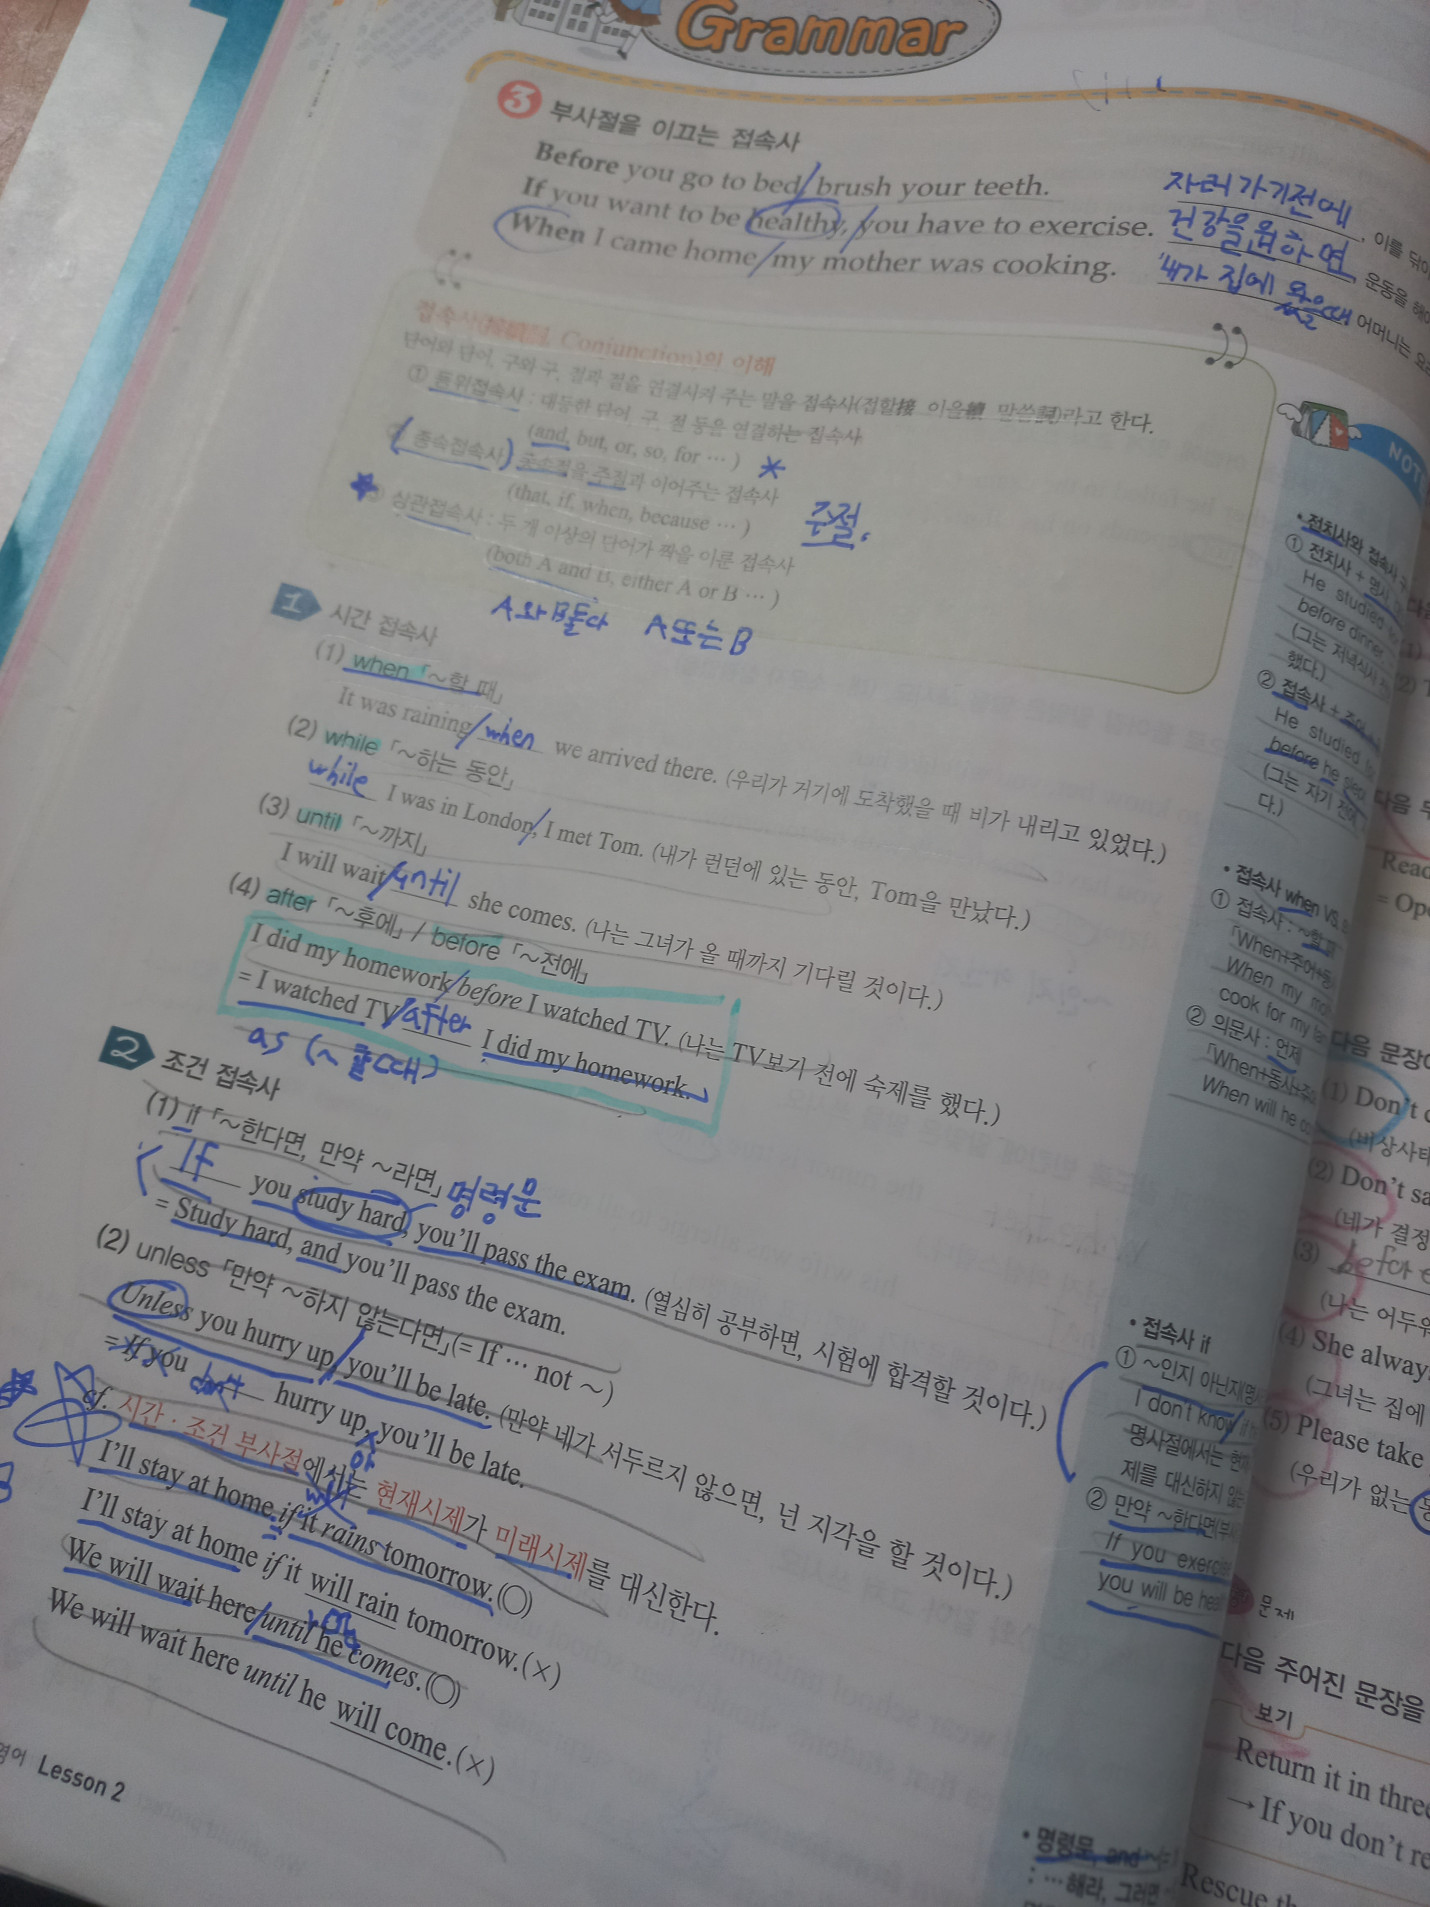 Grammar
3 부사절을 이끄는 접속사
Before you go to bed/ brush your teeth. 자러 가기전에, 이를 닦아
If you want to be healthy,/ you have to exercise. 건강을 원하면, 운동을 해야
When I came home/ my mother was cooking. 내가 집에 왔을때, 어머니는 요리
접속사(接續詞, Conjunction)의 이해
단어와 단어, 구와 구, 절과 절을 연결시켜 주는 말을 접속사(접할接 이을續 말씀詞)라고 한다.
① 등위접속사 : 대등한 단어, 구, 절 등을 연결하는 접속사
(and, but, or, so, for … )
② 종속접속사 : 종속절을 주절과 이어주는 접속사
(that, if, when, because … )
주절.
③ 상관접속사 : 두 개 이상의 단어가 짝을 이룬 접속사
(both A and B, either A or B … )
A와 B둘다 A또는 B
1 시간 접속사
(1) when 「~할 때」
It was raining/ when we arrived there. (우리가 거기에 도착했을 때 비가 내리고 있었다.)
(2) while 「~하는 동안」
while I was in London,/ I met Tom. (내가 런던에 있는 동안, Tom을 만났다.)
(3) until 「~까지」
I will wait/ until she comes. (나는 그녀가 올 때까지 기다릴 것이다.)
(4) after 「~후에」 / before 「~전에」
I did my homework/ before I watched TV. (나는 TV보기 전에 숙제를 했다.)
= I watched TV/ after I did my homework.
as (~할때)
2 조건 접속사
(1) if 「~한다면, 만약 ~라면」 명령문
If you study hard, you'll pass the exam. (열심히 공부하면, 시험에 합격할 것이다.)
= Study hard, and you'll pass the exam.
(2) unless 「만약 ~하지 않는다면」(= If … not ~)
Unless you hurry up,/ you'll be late. (만약 네가 서두르지 않으면, 넌 지각을 할 것이다.)
= If you don't hurry up, you'll be late.
cf. 시간 · 조건 부사절에서는 현재시제가 미래시제를 대신한다.
will
I'll stay at home if it rains tomorrow.(○)
I'll stay at home if it will rain tomorrow.(×)
We will wait here/ until he comes.(○)
We will wait here until he will come.(×)
영어 Lesson 2
NOT
• 전치사와 접속사
① 전치사 + 명사
He studied
before dinner.
(그는 저녁식사 전
했다.)
② 접속사 +
He studied
before he
(그는 자기 전에
다.)
• 접속사 when VS.
① 접속사 : ~할 때
「When+주어+동
When my mo
cook for my
② 의문사 : 언제
「When+동사+주
When will he co
• 접속사 if
① ~인지 아닌지(명
I don't know/ if
명사절에서는 현
제를 대신하지 않는
② 만약 ~한다면(부사
If you exercise
you will be heal
• 명령문, and ~
: … 해라, 그러면
다음
Read
= Op
다음 문장
(1) Don't
(비상사태
(2) Don't sa
(네가 결정
(3) before
(나는 어두워
(4) She alway
(그녀는 집에
(5) Please take
(우리가 없는 동
문제
다음 주어진 문장을
보기
Return it in three
→ If you don't re
Rescue th